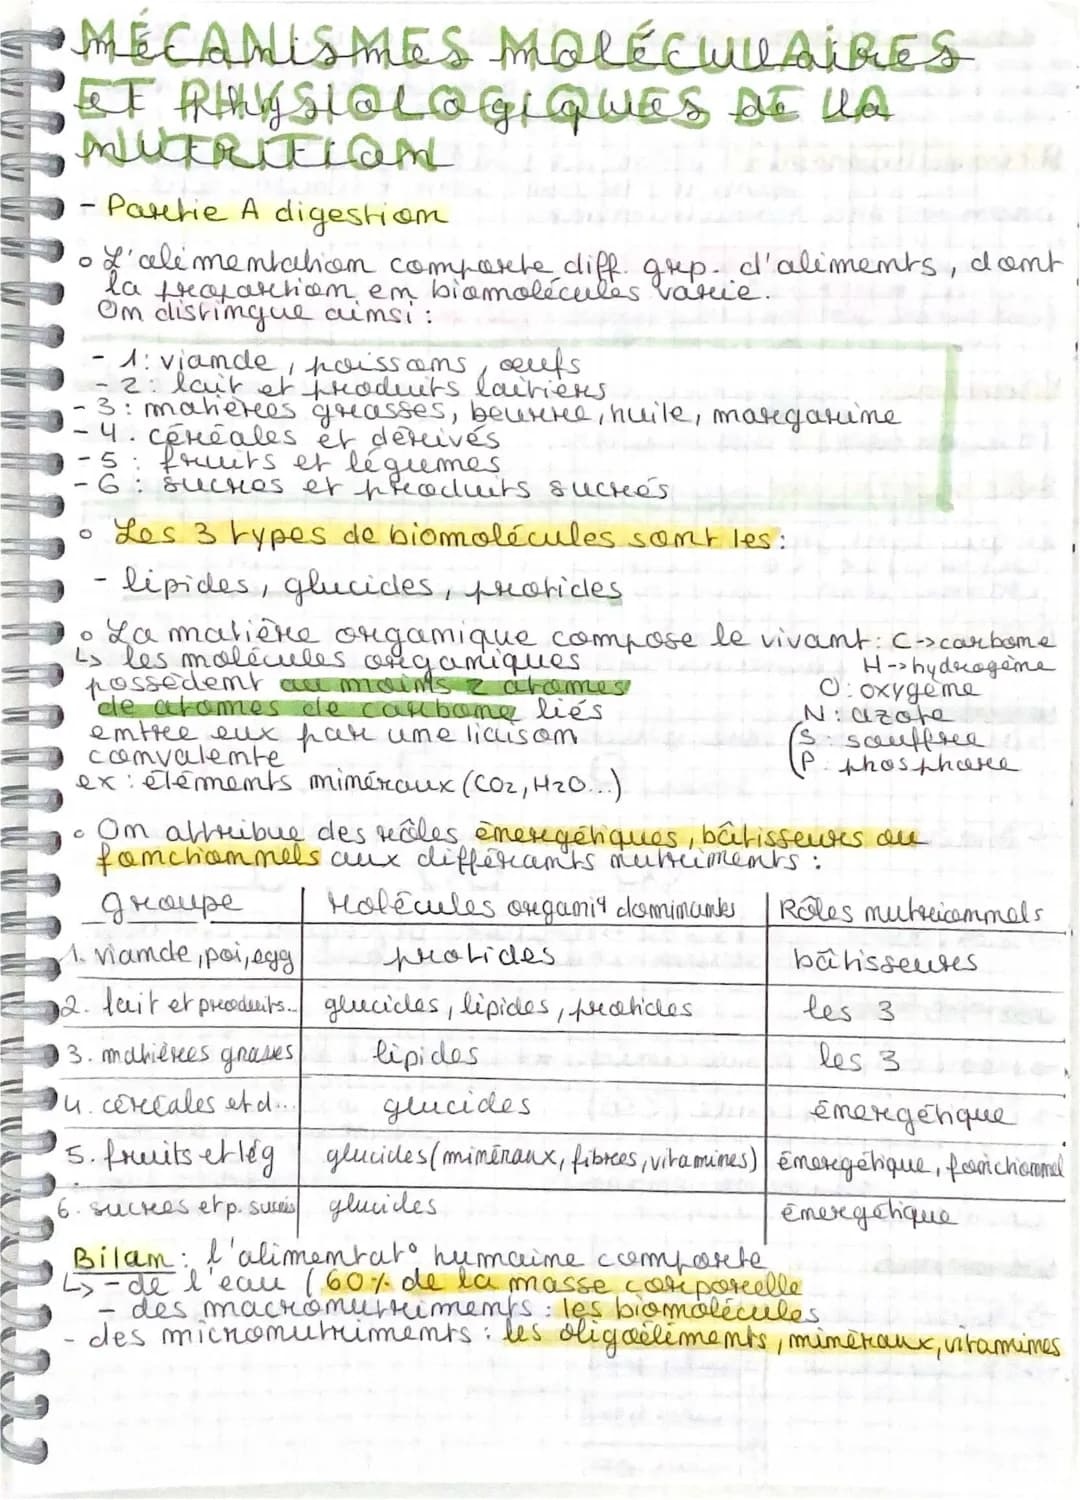 MÉCANISMES MOLÉCULAIRES
ET PHYSIOLOGIQUES DE LA
NUTRITION
- Partie A digestion
° L'alimentation comporte diff. grp. d'aliments, dont
la proportion en biomolécules varie.
On distingue ainsi :
- 1: viande, poissons, œufs
- 2: lait et produits laitiers
- 3: matières grasses, beurre, huile, margarine
- 4: céréales et dérivés
- 5: fruits et légumes
- 6: sucres et produits sucrés
° Les 3 types de biomolécules sont les:
- lipides, glucides, protides
° La matière organique compose le vivant: C->carbone
↳ les molécules organiques H->hydrogène
possèdent au moins 2 atomes O: oxygène
de atomes de carbone liés N: azote
entre eux par une liaison (S: souffre
convalente (P: phosphore
ex: éléments minéraux (CO2, H2O...)
° On attribue des rôles énergétiques, bâtisseurs ou
fonctionnels aux différents nutriments :
groupe | Molécules organiq dominantes | Rôles nutritionnels
1. viande, poi, egg | protides | bâtisseurs
2. lait et produits.. | glucides, lipides, protides | les 3
3. matières grases | lipides | les 3
4. céréales et d... | glucides | énergétique
5. fruits et lég | glucides (minéraux, fibres, vitamines) | énergétique, fonctionnel
6. sucres et p. sucrés | glucides | énergétique
Bilan: l'alimentat° humaine comporte
↳ - de l'eau (60% de la masse corporelle
- des macronutriments: les biomolécules
- des micronutriments: les oligoéléments, minéraux, vitamines